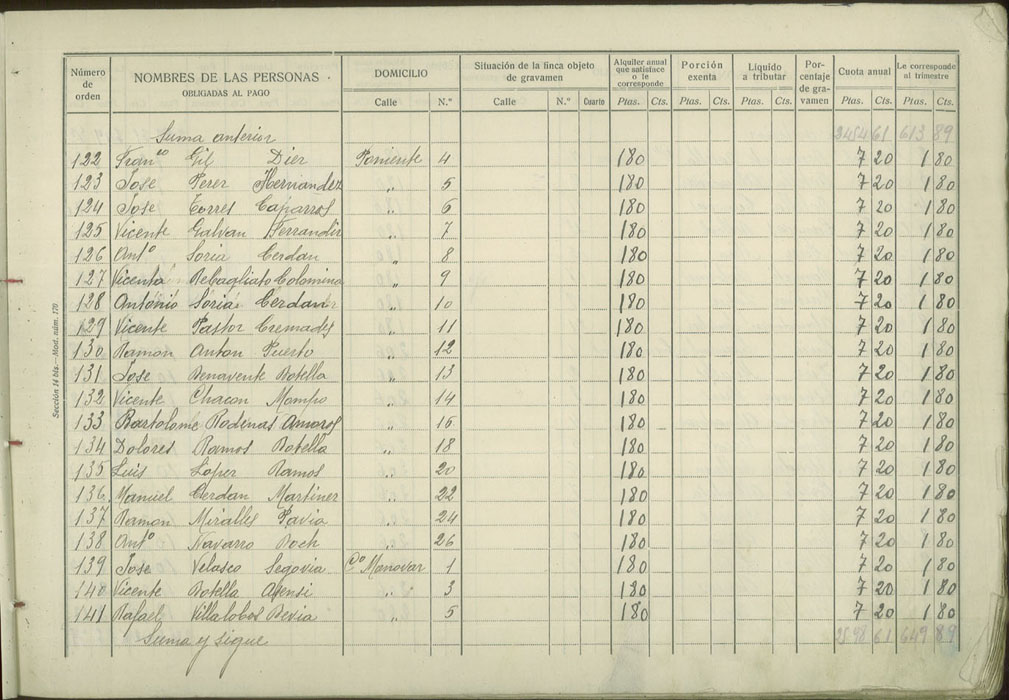 Número de orden | NOMBRES DE LAS PERSONAS OBLIGADAS AL PAGO | DOMICILIO | Situación de la finca objeto de gravamen | Alquiler anual que satisface o le corresponde | Porción exenta | Líquido a tributar | Porcentaje de gravamen | Cuota anual | Le corresponde al trimestre
Calle | N.º | Calle | N.º | Cuarto | Ptas. | Cts. | Ptas. | Cts. | Ptas. | Cts. | Ptas. | Cts. | Ptas. | Cts.
Suma anterior 2454 61 613 89
122 Franco Gil Dier Poniente 4 180 7 20 1 80
123 Jose Perer Hernandez " 5 180 7 20 1 80
124 Jose Torres Caparros " 6 180 7 20 1 80
125 Vicente Galvan Ferrandiz " 7 180 7 20 1 80
126 Antº Soria Cerdan " 8 180 7 20 1 80
127 Vicenta Rebagliato Colomina " 9 180 7 20 1 80
128 Antonio Soria Cerdan " 10 180 7 20 1 80
129 Vicente Pastor Cremades " 11 180 7 20 1 80
130 Ramon Anton Puerto " 12 180 7 20 1 80
131 Jose Benavente Botella " 13 180 7 20 1 80
132 Vicente Chacon Mompo " 14 180 7 20 1 80
133 Bartolome Rodenas Amoros " 16 180 7 20 1 80
134 Dolores Ramos Botella " 18 180 7 20 1 80
135 Luis Loper Ramos " 20 180 7 20 1 80
136 Manuel Cerdan Martiner " 22 180 7 20 1 80
137 Ramon Miralles Pavia " 24 180 7 20 1 80
138 Antº Navarro Poch " 26 180 7 20 1 80
139 Jose Velasco Segovia Cº Monovar 1 180 7 20 1 80
140 Vicente Botella Asensi " 3 180 7 20 1 80
141 Rafael Villalobos Bevia 5 180 7 20 1 80
Suma y sigue 2598 61 649 89
Sección 14 bis.—Mod. núm. 170